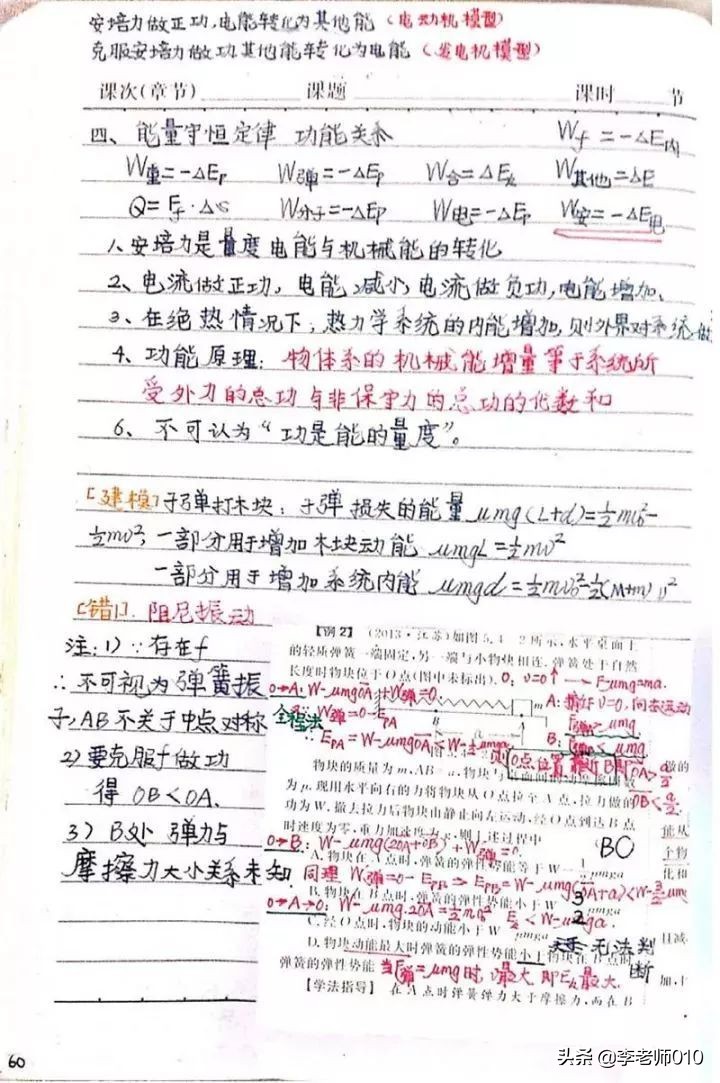 安培力做正功,电能转化为其他能（电动机模型）
克服安培力做功其他能转化为电能（发电机模型）
课次(章节) 课题 课时 节
四、能量守恒定律 功能关系 Wf=-ΔE内
W重=-ΔEp W弹=-ΔEp W合=ΔEk W其他=ΔE
Q=Ff·ΔS W分子=-ΔEp W电=-ΔEp W安=-ΔE电
1、安培力是量度电能与机械能的转化
2、电流做正功，电能减小,电流做负功,电能增加、
3、在绝热情况下，热力学系统的内能增加,则外界对系统做
4、功能原理：物体系的机械能增量等于系统所
受外力的总功与非保守力的总功的代数和
6、不可认为“功是能的量度”。
[建模]子弹打木块：子弹损失的能量 μmg(L+d)=½mv0²-
½mv²，一部分用于增加木块动能 μmgL=½mv²
一部分用于增加系统内能 μmgd=½mv0²-½(M+m)v²
[错]1、阻尼振动
注:1)∵存在f
∴不可视为弹簧振
子,AB不关于中点对称
2)要克服f做功
得 OB<OA.
3) B处 弹力与
摩擦力大小关系未知
【例2】(2013·江苏)如图5.4 2所示,水平桌面上
的轻质弹簧一端固定,另一端与小物块相连.弹簧处于自然
长度时物块位于O点(图中未标出). O: v=0
O→A: W-μmgOA+W弹=0. m A: v=0,向左运动
全程法 W弹=0-EPA
∴EPA=W-μmgOA B: μmg
O点位置靠近B即OA>a/2
物块的质量为m,AB=a,物块与
OB<a/2
为μ.现用水平向右的力将物块从O点拉至A点,拉力做的
功为W.撤去拉力后物块由静止向左运动,经O点到达B点
时速度为零.重力加速度为g.则上述过程中
O→B: W-μmg(2OA+OB)+W弹=0. BO
A.物块在A点时,弹簧的弹性势能等于W-½μmga
同理 W弹=0-EPB⇒EPB=W-μmg(OA+a)<W-3/2μmga
B.物块在B点时,弹簧的弹性势能小于W-3/2μmga
O→A→O: W-μmg·2OA=½mv0² Ek<W-μmga.
C.经O点时,物块的动能小于W-μmga
D.物块动能最大时弹簧的弹性势能小于物块在B点时 无法判断
弹簧的弹性势能 当F弹=μmg时,v最大,即Ek最大.
【学法指导】 在A点时弹簧弹力大于摩擦力,而在B
60
头条 @李老师010